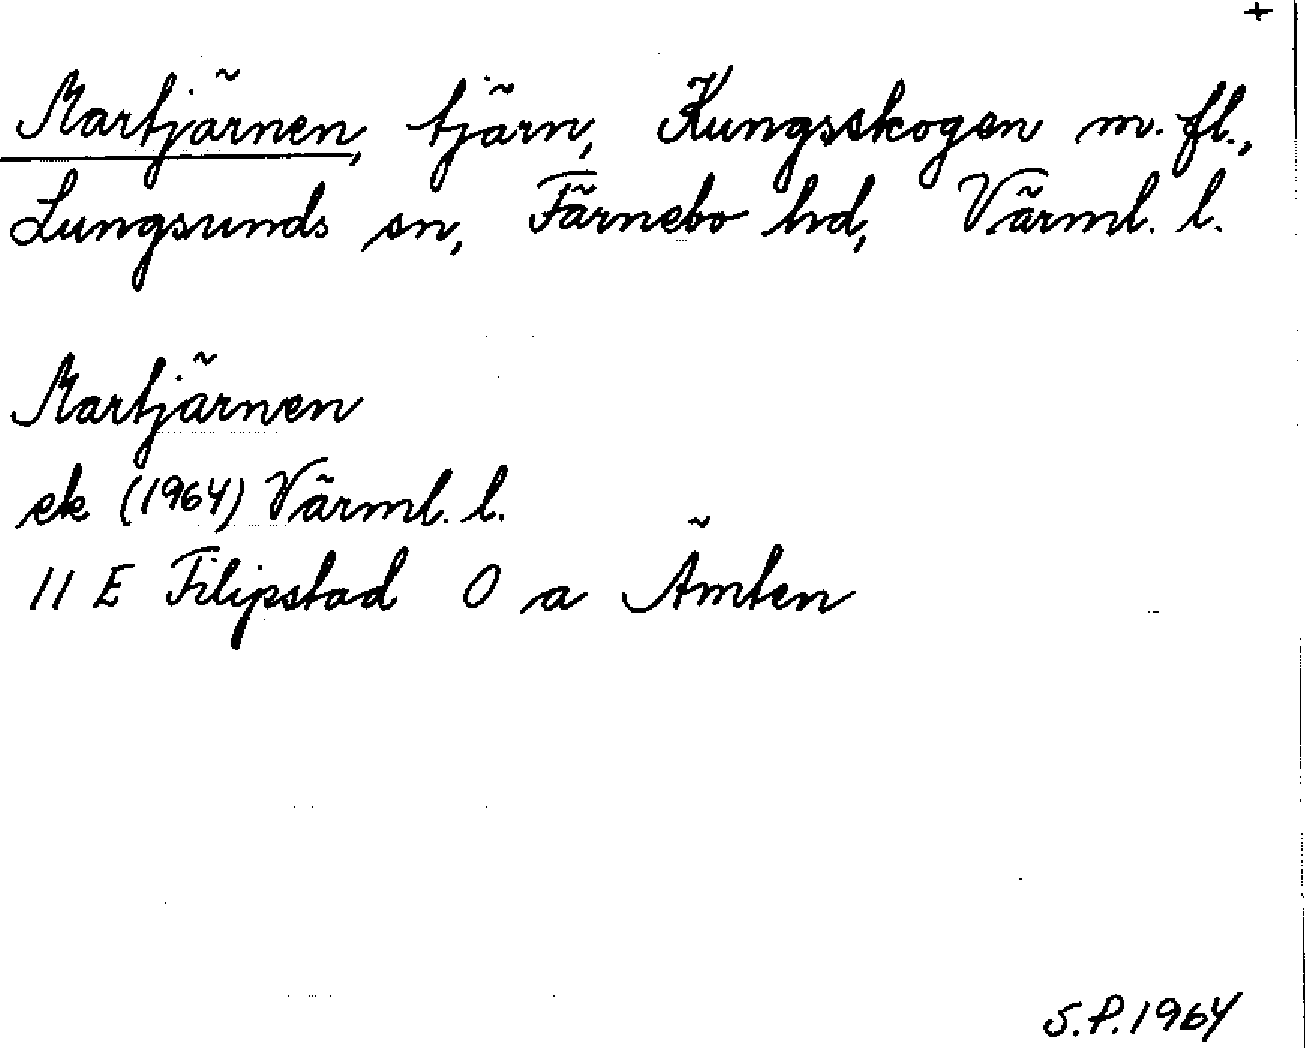 +
Martjärnen, tjärn, Kungsskogen m. fl.,
Lungsunds sn, Färnebo hd, Värml. l.
Martjärnen
ek (1964) Värml. l.
11 E Filipstad 0 a Ämten
S.P. 1964